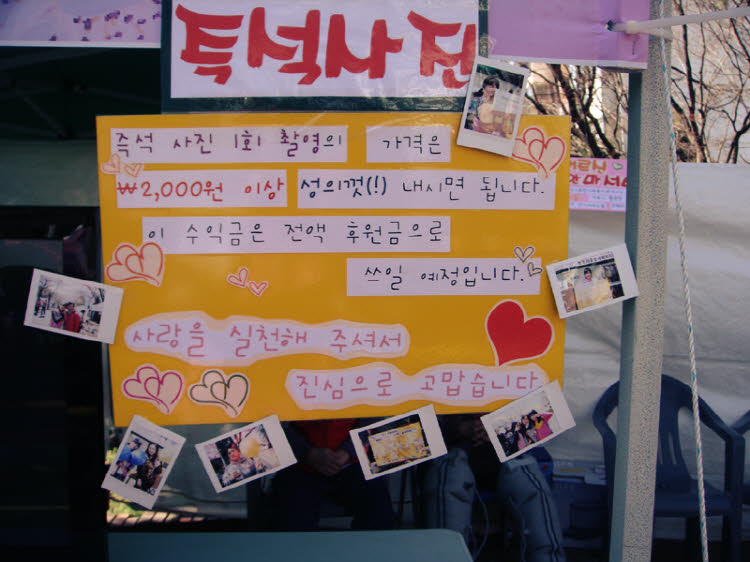 즉석사진
즉석 사진 1회 촬영의 가격은
₩2,000원 이상 성의껏(!) 내시면 됩니다.
이 수익금은 전액 후원금으로
쓰일 예정입니다.
사랑을 실천해 주셔서
진심으로 고맙습니다